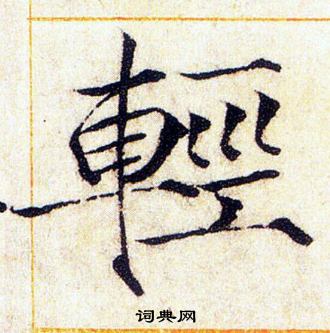 輕
词典网